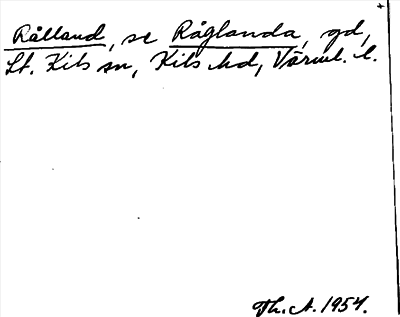 Rålland, se Råglanda, gd,
St. Kils sn, Kils hd, Värml. l.
Th. A. 1954.